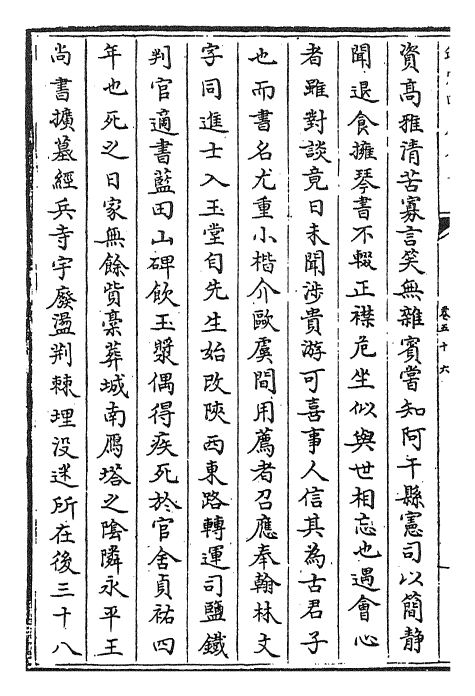 資高雅清苦寡言笑無雜賓嘗知阿干縣憲司以簡静
聞退食擁琴書不輟正襟危坐似與世相忘也遇會心
者雖對談竟日未聞渉貴游可喜事人信其為古君子
也而書名尤重小楷介歐虞間用薦者召應奉翰林文
字同進士入玉堂自先生始改陜西東路轉運司鹽鐵
判官適書藍田山碑飲玉漿偶得疾死於官舍貞祐四
年也死之日家無餘貲藁葬城南鴈塔之陰隣永平王
尚書擴墓經兵寺宇廢盪荆棘埋没迷所在後三十八
卷五十六